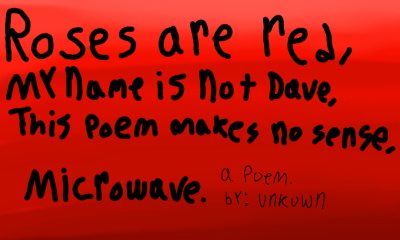 Roses are red,
MY Name is Not Dave,
This Poem makes no sense,
Microwave.
a Poem.
by: unkown